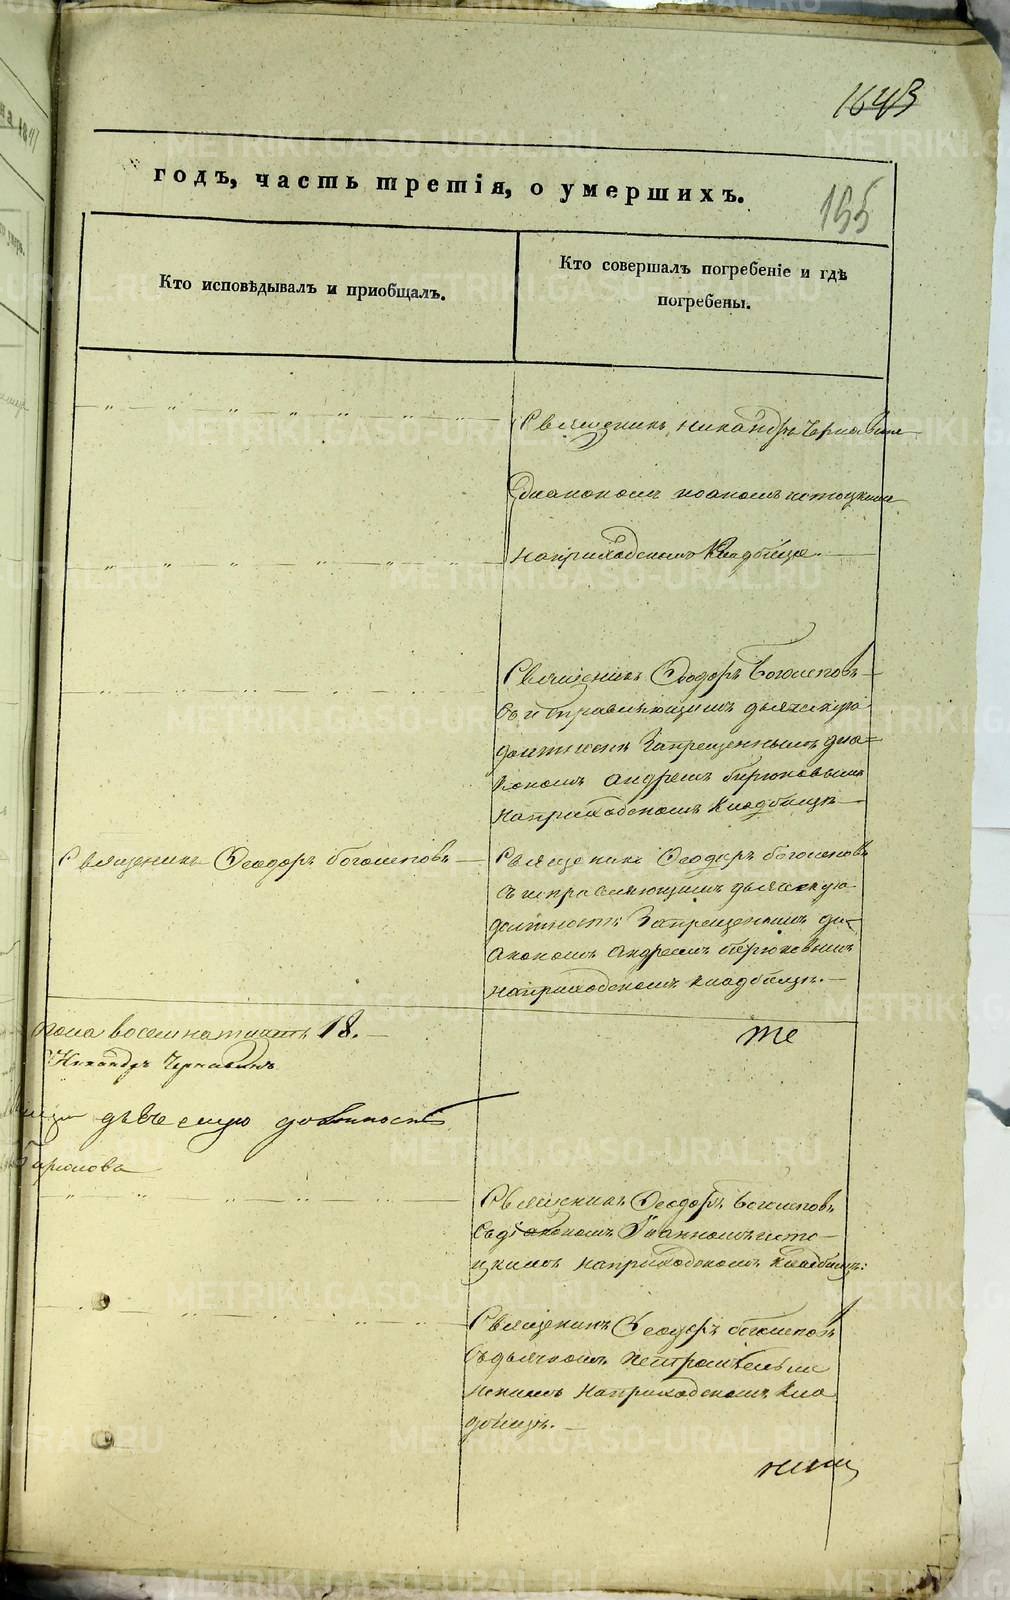 1643
годъ, часть третія, о умершихъ.
155
Кто исповѣдывалъ и приобщалъ.
Кто совершалъ погребеніе и гдѣ
погребены.
Священникъ Никандръ Чернавинъ
Сдиакономъ Иоаномъ истоцкимъ
наприходскомъ Кладбище.
Священникъ Феодоръ Богослповъ
съ исправляющимъ дьяческую
должность Запрещеннымъ диа-
кономъ Андреемъ бирюковымъ
наприходскомъ кладбищѣ
Священникъ Феодоръ богослповъ
Священникъ Феодоръ богослповъ
съ исправляющимъ дьяческую
должность Запрещеннымъ ди-
акономъ Андреемъ бирюковымъ
наприходскомъ кладбищѣ.
пола восемнатцать 18.
те
Никандръ Чернавинъ
должность
Бирюкова
Священникъ Феодоръ Богослповъ
Съдіакономъ Іоанномъ исто-
цкимъ наприходскомъ кладбищѣ:
Священникъ Феодоръ богослповъ
Съдьячкомъ Петромъ
наприходскомъ Кла
дбищѣ.
METRIKI.GASO-URAL.RU